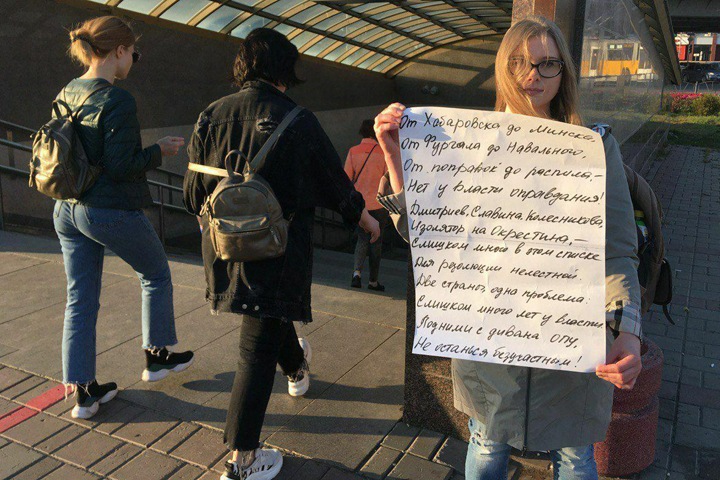 От Хабаровска до Минска,
От Фургала до Навального,
От „поправок" до распила, –
Нет у власти оправдания!
Дмитриев, Славина, Колесникова,
Изолятор на Окрестина, –
Слишком много в том списке
Для резолюции нелестной.
Две страны, одна проблема:
Слишком много лет у власти.
Подними с дивана опу,
Не останься безучастным!